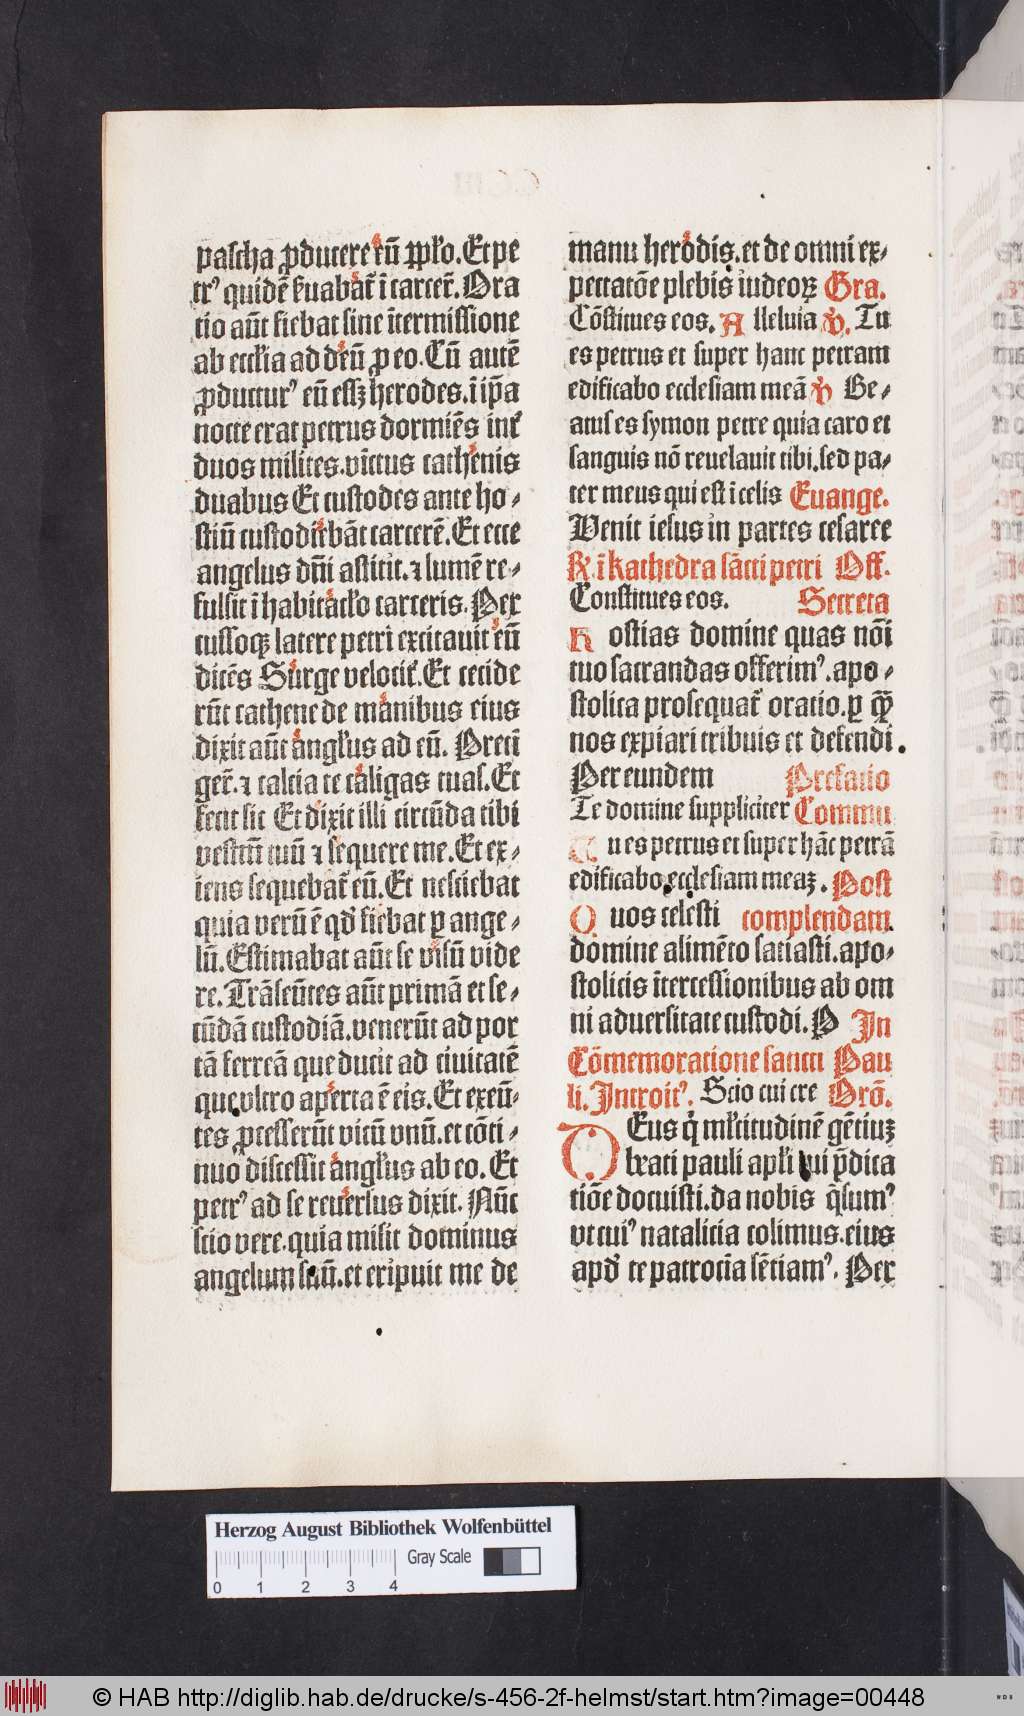 pascha ꝓducere eū ppło. Et pe
trꝰ quidē ẜuabat᷑ ī carcer̄. Ora
tio aūt fiebat sine ītermissione
ab eccłia ad deū ꝓ eo. Cū autē
ꝓducturꝰ eū essꝫ herodes. ī ip̄a
nocte erat petrus dormiēs int᷑
duos milites. vīctus cathenis
duabus Et custodes ante ho⸗
stiū custodiebāt carcerē. Et ecce
angelus dn̄i astitit. ⁊ lumē re⸗
fulsit ī habitac̄ło carceris. Per
cussoqꝫ latere petri excitauit eū
dicēs Surge velocit᷑. Et cecide
rūt cathene de manibus eius
dixit aūt angłus ad eū. Precī
ger̄. ⁊ calcia te caligas tuas. Et
fecit sic Et dixit illi circūda tibi
vestm̄ tuū ⁊ sequere me. Et ex⸗
iens sequebat᷑ eū. Et nesciebat
quia verū ē qd̛ fiebat ꝑ ange⸗
lū. Estimabat aūt se visū vide
re. Trāseūtes aūt primā et se⸗
cūdā custodiā. venerūt ad por
tā ferreā que ducit ad ciuitatē
que vltro aperta ē eis. Et exeū⸗
tes ꝓcesserūt vicū vnū. et cōti⸗
nuo discessit angłus ab eo. Et
petrꝰ ad se reuersus dixit. Nūc
scio vere. quia misit dominus
angelum suū. et eripuit me de
manu herodis. et de omni ex⸗
pectatōe plebis iudeoꝝ Gra.
Cōstitues eos. A lleluia ꝟ. Tu
es petrus et super hanc petram
edificabo ecclesiam meā ꝟ Be⸗
atus es symon petre quia caro et
sanguis nō reuelauit tibi. sed pa⸗
ter meus qui est ī celis Euange.
Venit iesus in partes cesaree
R̄. ī kathedra sācti petri Off.
Constitues eos. Secreta
H ostias domine quas nōi
tuo sacrandas offerimꝰ. apo⸗
stolica prosequat᷑ oratio. ꝑ quā
nos expiari tribuis et defendi.
Per eundem Prefatio
Te domine suppliciter Commu
T u es petrus et super hāc petrā
edificabo ecclesiam meaꝫ. Post
Q uos celesti complendam.
domine alimēto saciasti. apo⸗
stolicis ītercessionibus ab om
ni aduersitate custodi. P In
Cōmemoratione sancti Pau
li. Introitꝰ. Scio cui cre Orō.
D Eus qͥ młtitudinē gētiuꝫ
beati pauli apłi tui p̄dica
tiōe docuisti. da nobis q̄sumꝰ
vt cuiꝰ natalicia colimus. eius
apd̛ te patrocīa sētiamꝰ. Per
Herzog August Bibliothek Wolfenbüttel
Gray Scale
0 1 2 3 4
© HAB http://diglib.hab.de/drucke/s-456-2f-helmst/start.htm?image=00448